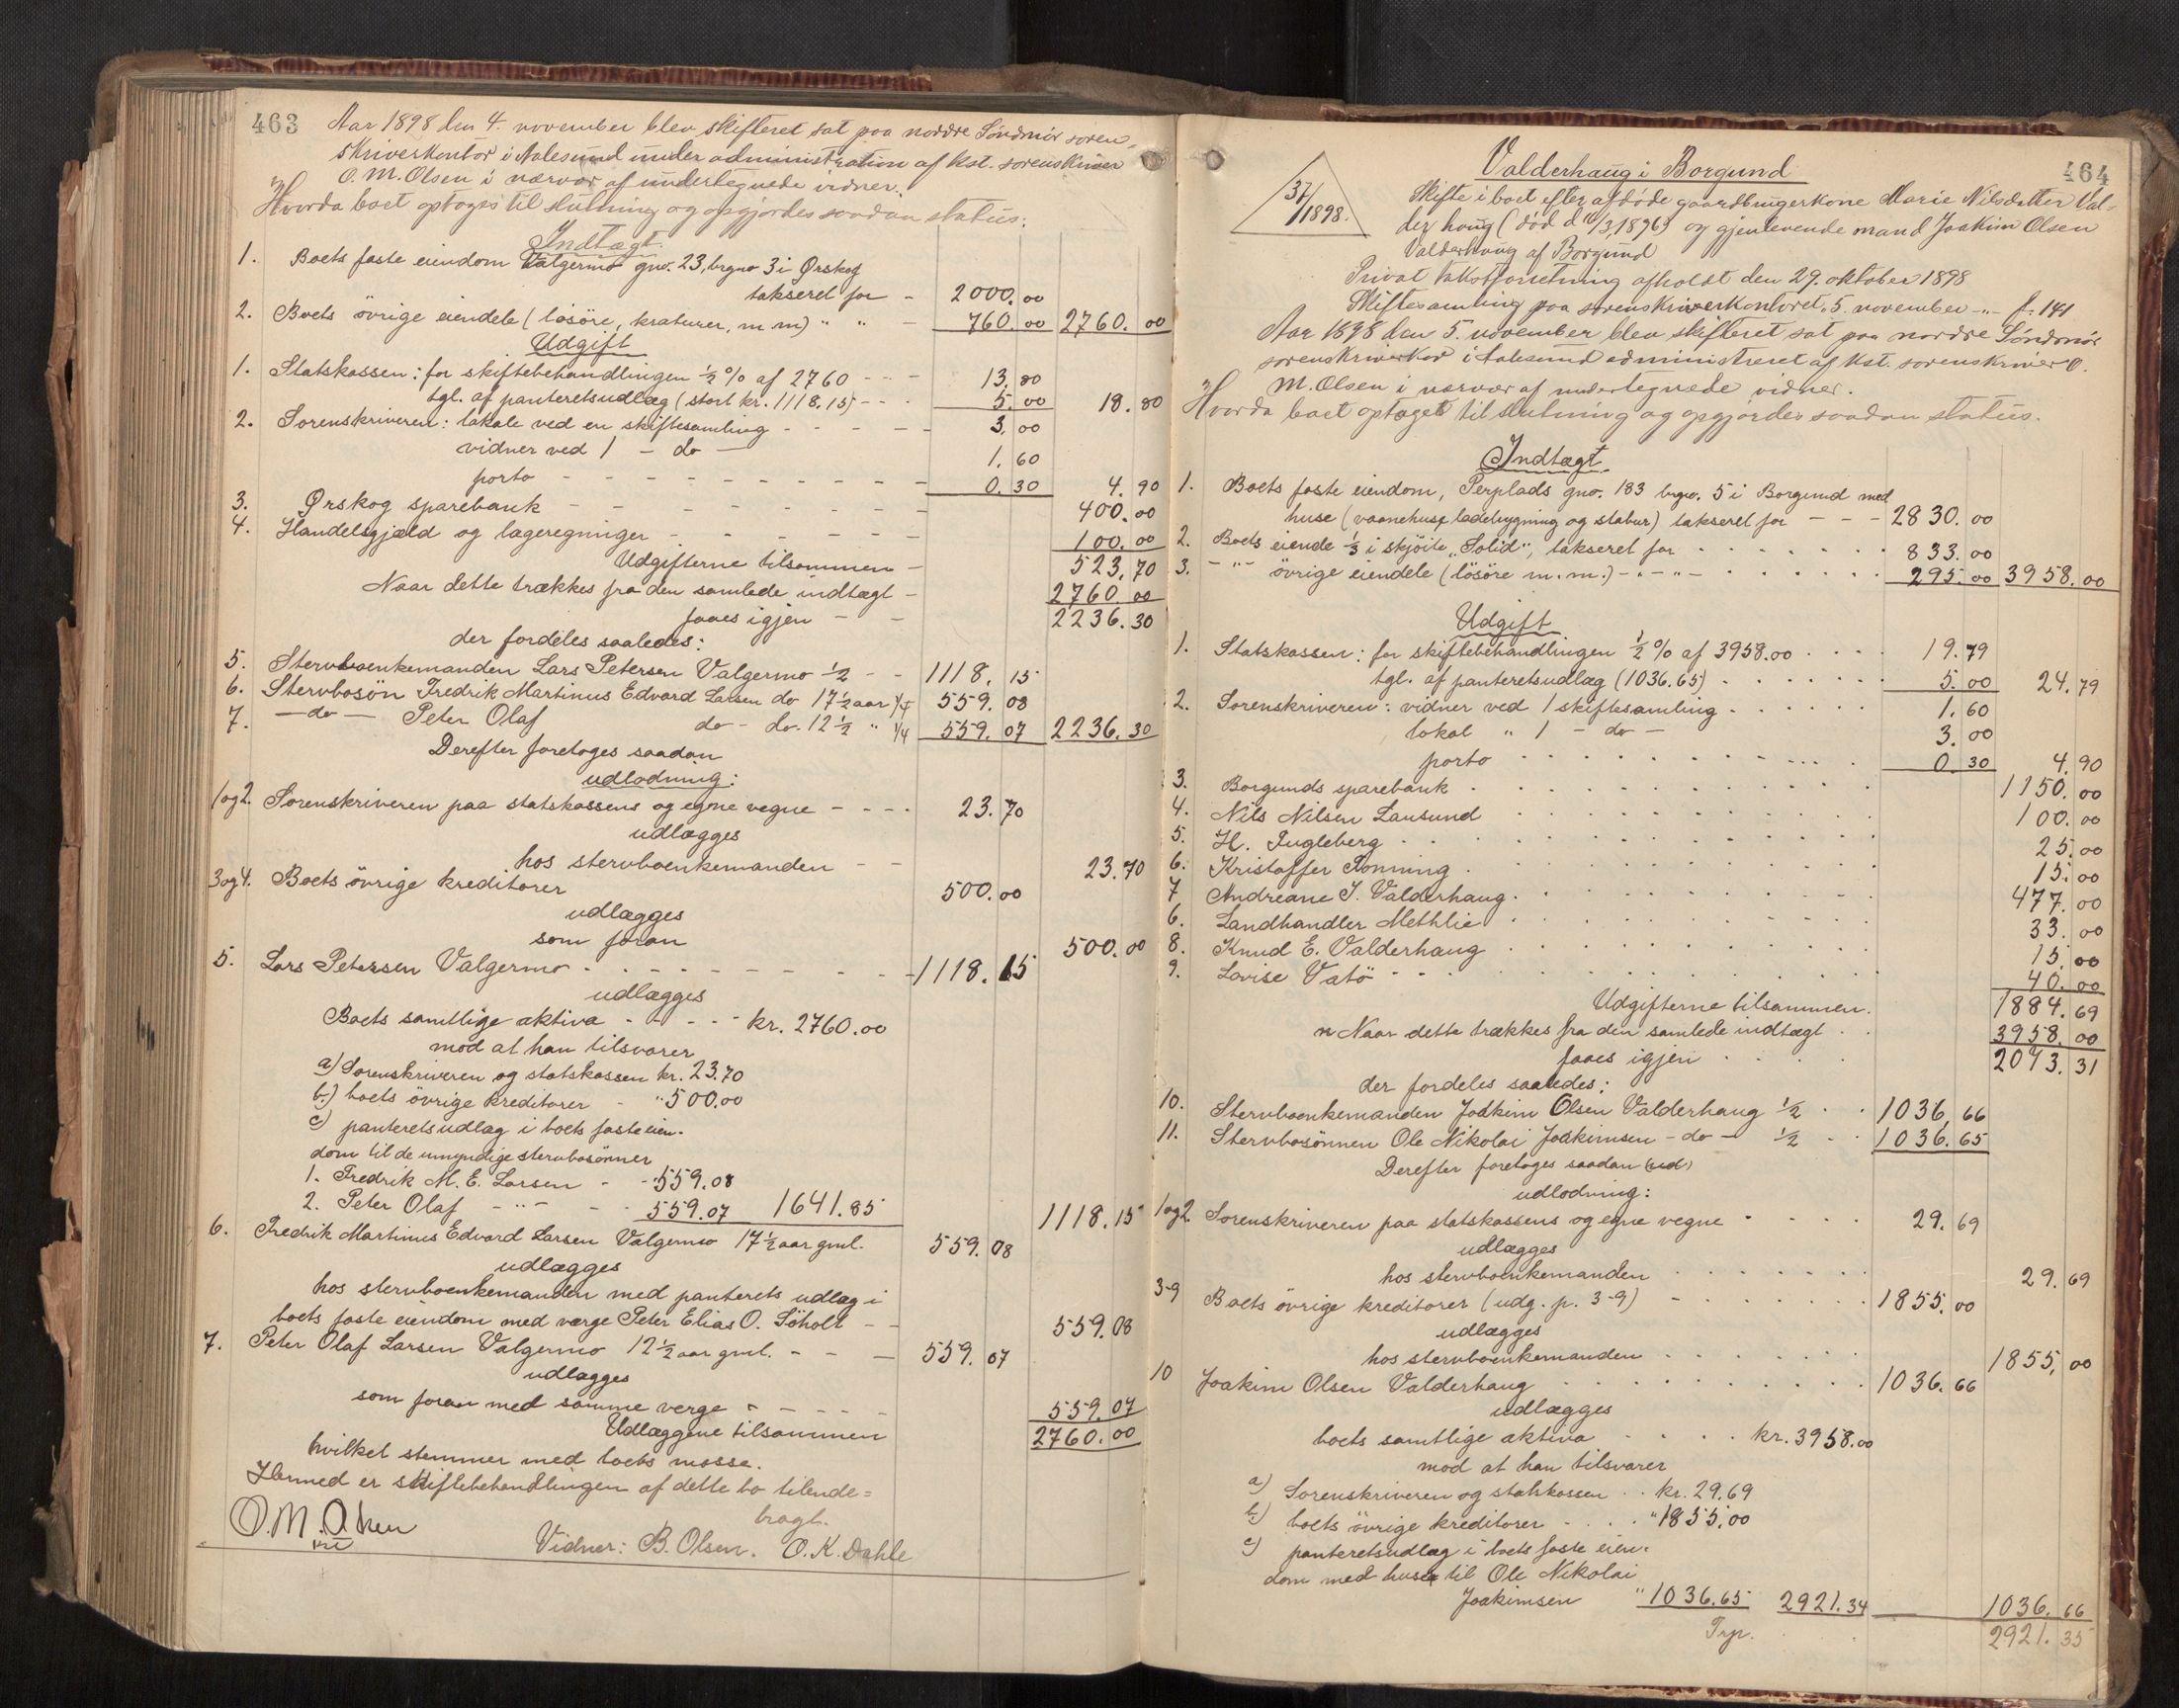 463
Aar 1898 den 4. november blev skifteret sat paa nordre Söndmör soren-
skriverkontor i Aalesund under administration af kst. sorenskriver
O. M. Olsen i nærvær af undertegnede vidner.
Hvorda boet optoges til slutning og opgjordes saadan status:
Indtægt.
1. Boets faste eiendom Valgermo gno. 23, brgno 3 i Ørskog
takseret for - 2000.00
2. Boets övrige eiendele (lösöre, kreaturer, m m) " " - 760.00 2760.00
Udgift
1. Statskassen: for skiftebehandlingen ½ % af 2760 - - - 13.80
tgl. af panteretsudlæg (stort kr. 1118.15) - - - 5.00 18.80
2. Sorenskriveren: lokale ved en skiftesamling - - - - - 3.00
vidner ved 1 - do - 1.60
porto - - - - - - - - - 0.30 4.90
3. Ørskog sparebank - - - - - - - - 400.00
4. Handelsgjæld og lægeregninger - - - - - - 100.00
Udgifterne tilsammen - 523.70
Naar dette trækkes fra den samlede indtægt - 2760.00
faaes igjen - - 2236.30
der fordeles saaledes:
5. Stervboenkemanden Lars Petersen Valgermo ½ - - 1118.15
6. Stervbosön Fredrik Martinus Edvard Larsen do 17½ aar ¼ 559.08
7. - do - Peter Olaf do - do. 12½ " ¼ 559.07 2236.30
Derefter foretoges saadan
udlodning:
1 og 2. Sorenskriveren paa statskassens og egne vegne - - - - 23.70
udlægges
hos stervboenkemanden - - 23.70
3 og 4. Boets övrige kreditorer 500.00
udlægges
som foran 500.00
5. Lars Petersen Valgermo - - - - - - - - - 1118.15
udlægges
Boets samtlige aktiva - - - - - kr. 2760.00
mod at han tilsvarer
a) Sorenskriveren og statskassen kr. 23.70
b.) boets övrige kreditorer - " 500.00
c) panteretsudlæg i boets faste eien-
dom til de umyndige stervbosönner
1. Fredrik M. E. Larsen - - " 559.08
2. Peter Olaf - " - - - 559.07 1641.85 1118.15
6. Fredrik Martinus Edvard Larsen Valgermo 17½ aar gml. 559.08
udlægges
hos stervboenkemanden med panterets udlæg i
boets faste eiendom med værge Peter Elias O. Söholt - - 559.08
7. Peter Olaf Larsen Valgermo 12½ aar gml. - - - 559.07
udlægges
som foran med samme verge - - - - - 559.07
Udlæggene tilsammen 2760.00
hvilket stemmer med boets masse.
Hermed er skiftebehandlingen af dette bo tilende-
bragt.
O. M. Olsen
kst
Vidner: B. Olsen. O. K. Dahle
464
Valderhaug i Borgund
37/1898.
Skifte i boet efter afdøde gaardbrugerkone Marie Nilsdatter Val-
derhaug (död d 11/3, 1896) og gjenlevende mand Joakim Olsen
Valderhaug af Borgund
Privat takstforretning afholdt den 29. oktober 1898
Skiftesamling paa sorenskriverkontoret 5. november - " - f. 141
Aar 1898 den 5. november blev skifteret sat paa nordre Söndmör
sorenskriverkor i Aalesund administreret af kst. sorenskriver O.
M. Olsen i nærvær af undertegnede vidner.
Hvorda boet optaget til slutning og opgjordes saadan status.
Indtægt.
1. Boets faste eiendom, Perplads gno. 183 brgno. 5 i Borgund med
huse (vaanehuse ladebygning og stabur) takseret for - - - 2830.00
2. Boets eiende ⅓ i skjöite "Solid", takseret for 833.00
3. - " - övrige eiendele (lösöre m. m.) - . - " - 295.00 3958.00
Udgift
1. Statskassen: for skiftebehandlingen ½ % af 3958.00 19.79
tgl. af panteretsudlæg (1036.65) 5.00 24.79
2. Sorenskriveren: vidner ved 1 skiftesamling 1.60
lokal " 1 - do - 3.00
porto 0.30 4.90
3. Borgunds sparebank 1150.00
4. Nils Nilsen Lausund 100.00
5. H. Jugleberg 25.00
6. Kristoffer Rönning 15.00
7 Andreane J. Valderhaug 477.00
6. Landhandler Methlie 33.00
8. Knud E. Valderhaug 15.00
9. Lovise Vatö 40.00
Udgifterne tilsammen. 1884.69
Naar dette trækkes fra den samlede indtægt 3958.00
faaes igjen 2073.31
der fordeles saaledes:
10. Stervboenkemanden Joakim Olsen Valderhaug ½ 1036.66
11. Stervbosönnen Ole Nikolai Joakimsen - do - ½ 1036.65
Derefter foretoges saadan (ud)
udlodning:
1 og 2 Sorenskriveren paa statskassens og egne vegne 29.69
udlægges
hos stervboenkemanden 29.69
3-9 Boets övrige kreditorer (udg. p. 3-9) 1855.00
udlægges
hos stervboenkemanden 1855.00
10 Joakim Olsen Valderhaug 1036.66
udlægges
boets samtlige aktiva kr. 3958.00
mod at han tilsvarer
a) Sorenskriveren og statskassen kr. 29.69
b) boets övrige kreditorer " 1855.00
c) panteretsudlæg i boets faste eien-
dom med huse til Ole Nikolai
Joakimsen " 1036.65 2921.34 1036.66
Trp. 2921.35